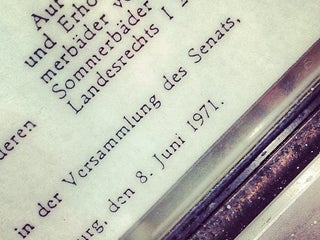 Auf
und Erho
merbäder vo
Sommerbäder
Landesrechts I
deren
in der Versammlung des Senats,
urg, den 8. Juni 1971.